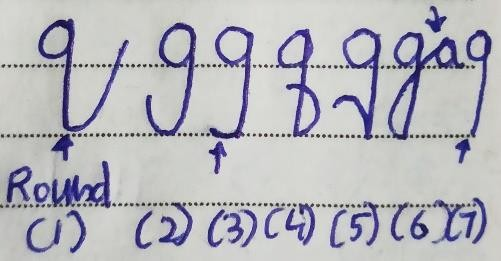 q g g g g g a g
Round
(1) (2) (3) (4) (5) (6) (7)